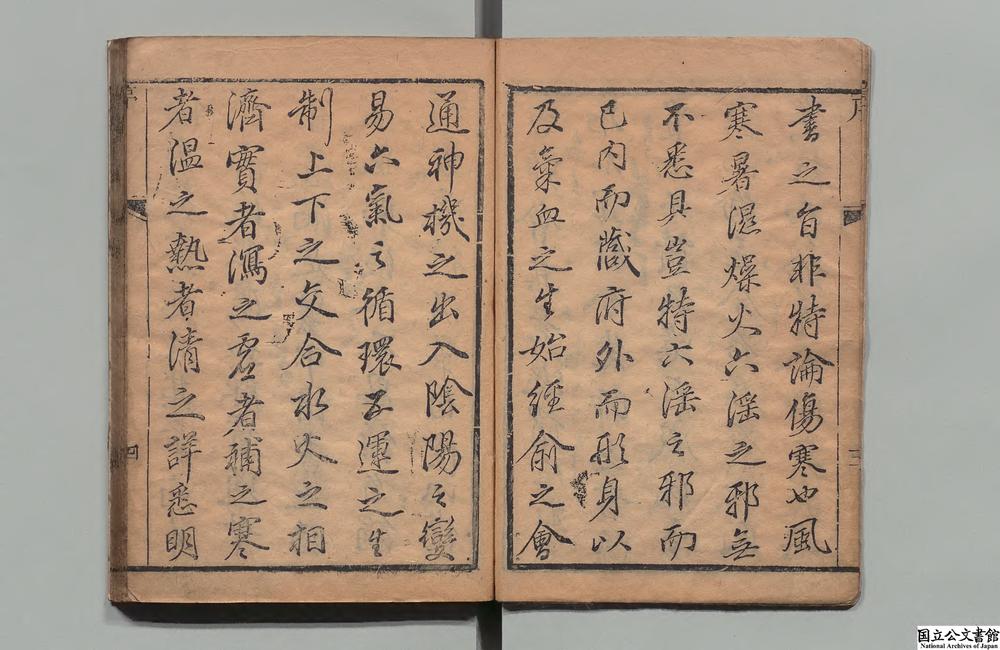 書之旨非特論傷寒也風
寒暑濕燥火六淫之邪無
不悉具豈特六淫之邪而
已內而臟府外而形身以
及氣血之生始經俞之會
通神機之出入陰陽之變
易六氣之循環五運之生
制上下之交合水火之相
濟實者瀉之虛者補之寒
者溫之熱者清之詳悉明
序
三
四
国立公文書館
National Archives of Japan